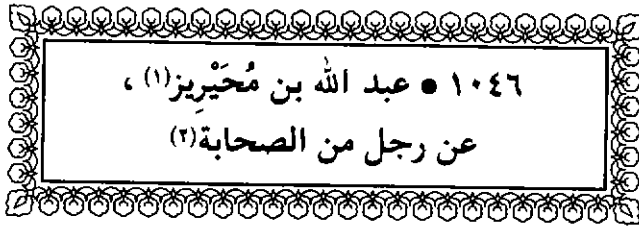 ١٠٤٦ • عبد الله بن مُحَيْرِيز(١) ،
عن رجل من الصحابة(٢)